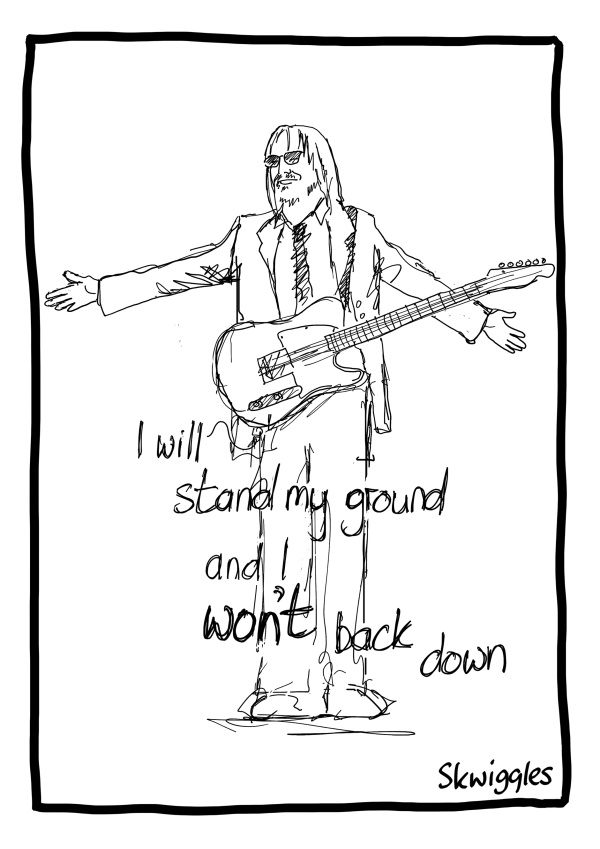 I will
stand my ground
and I
won't back
down
Skwiggles